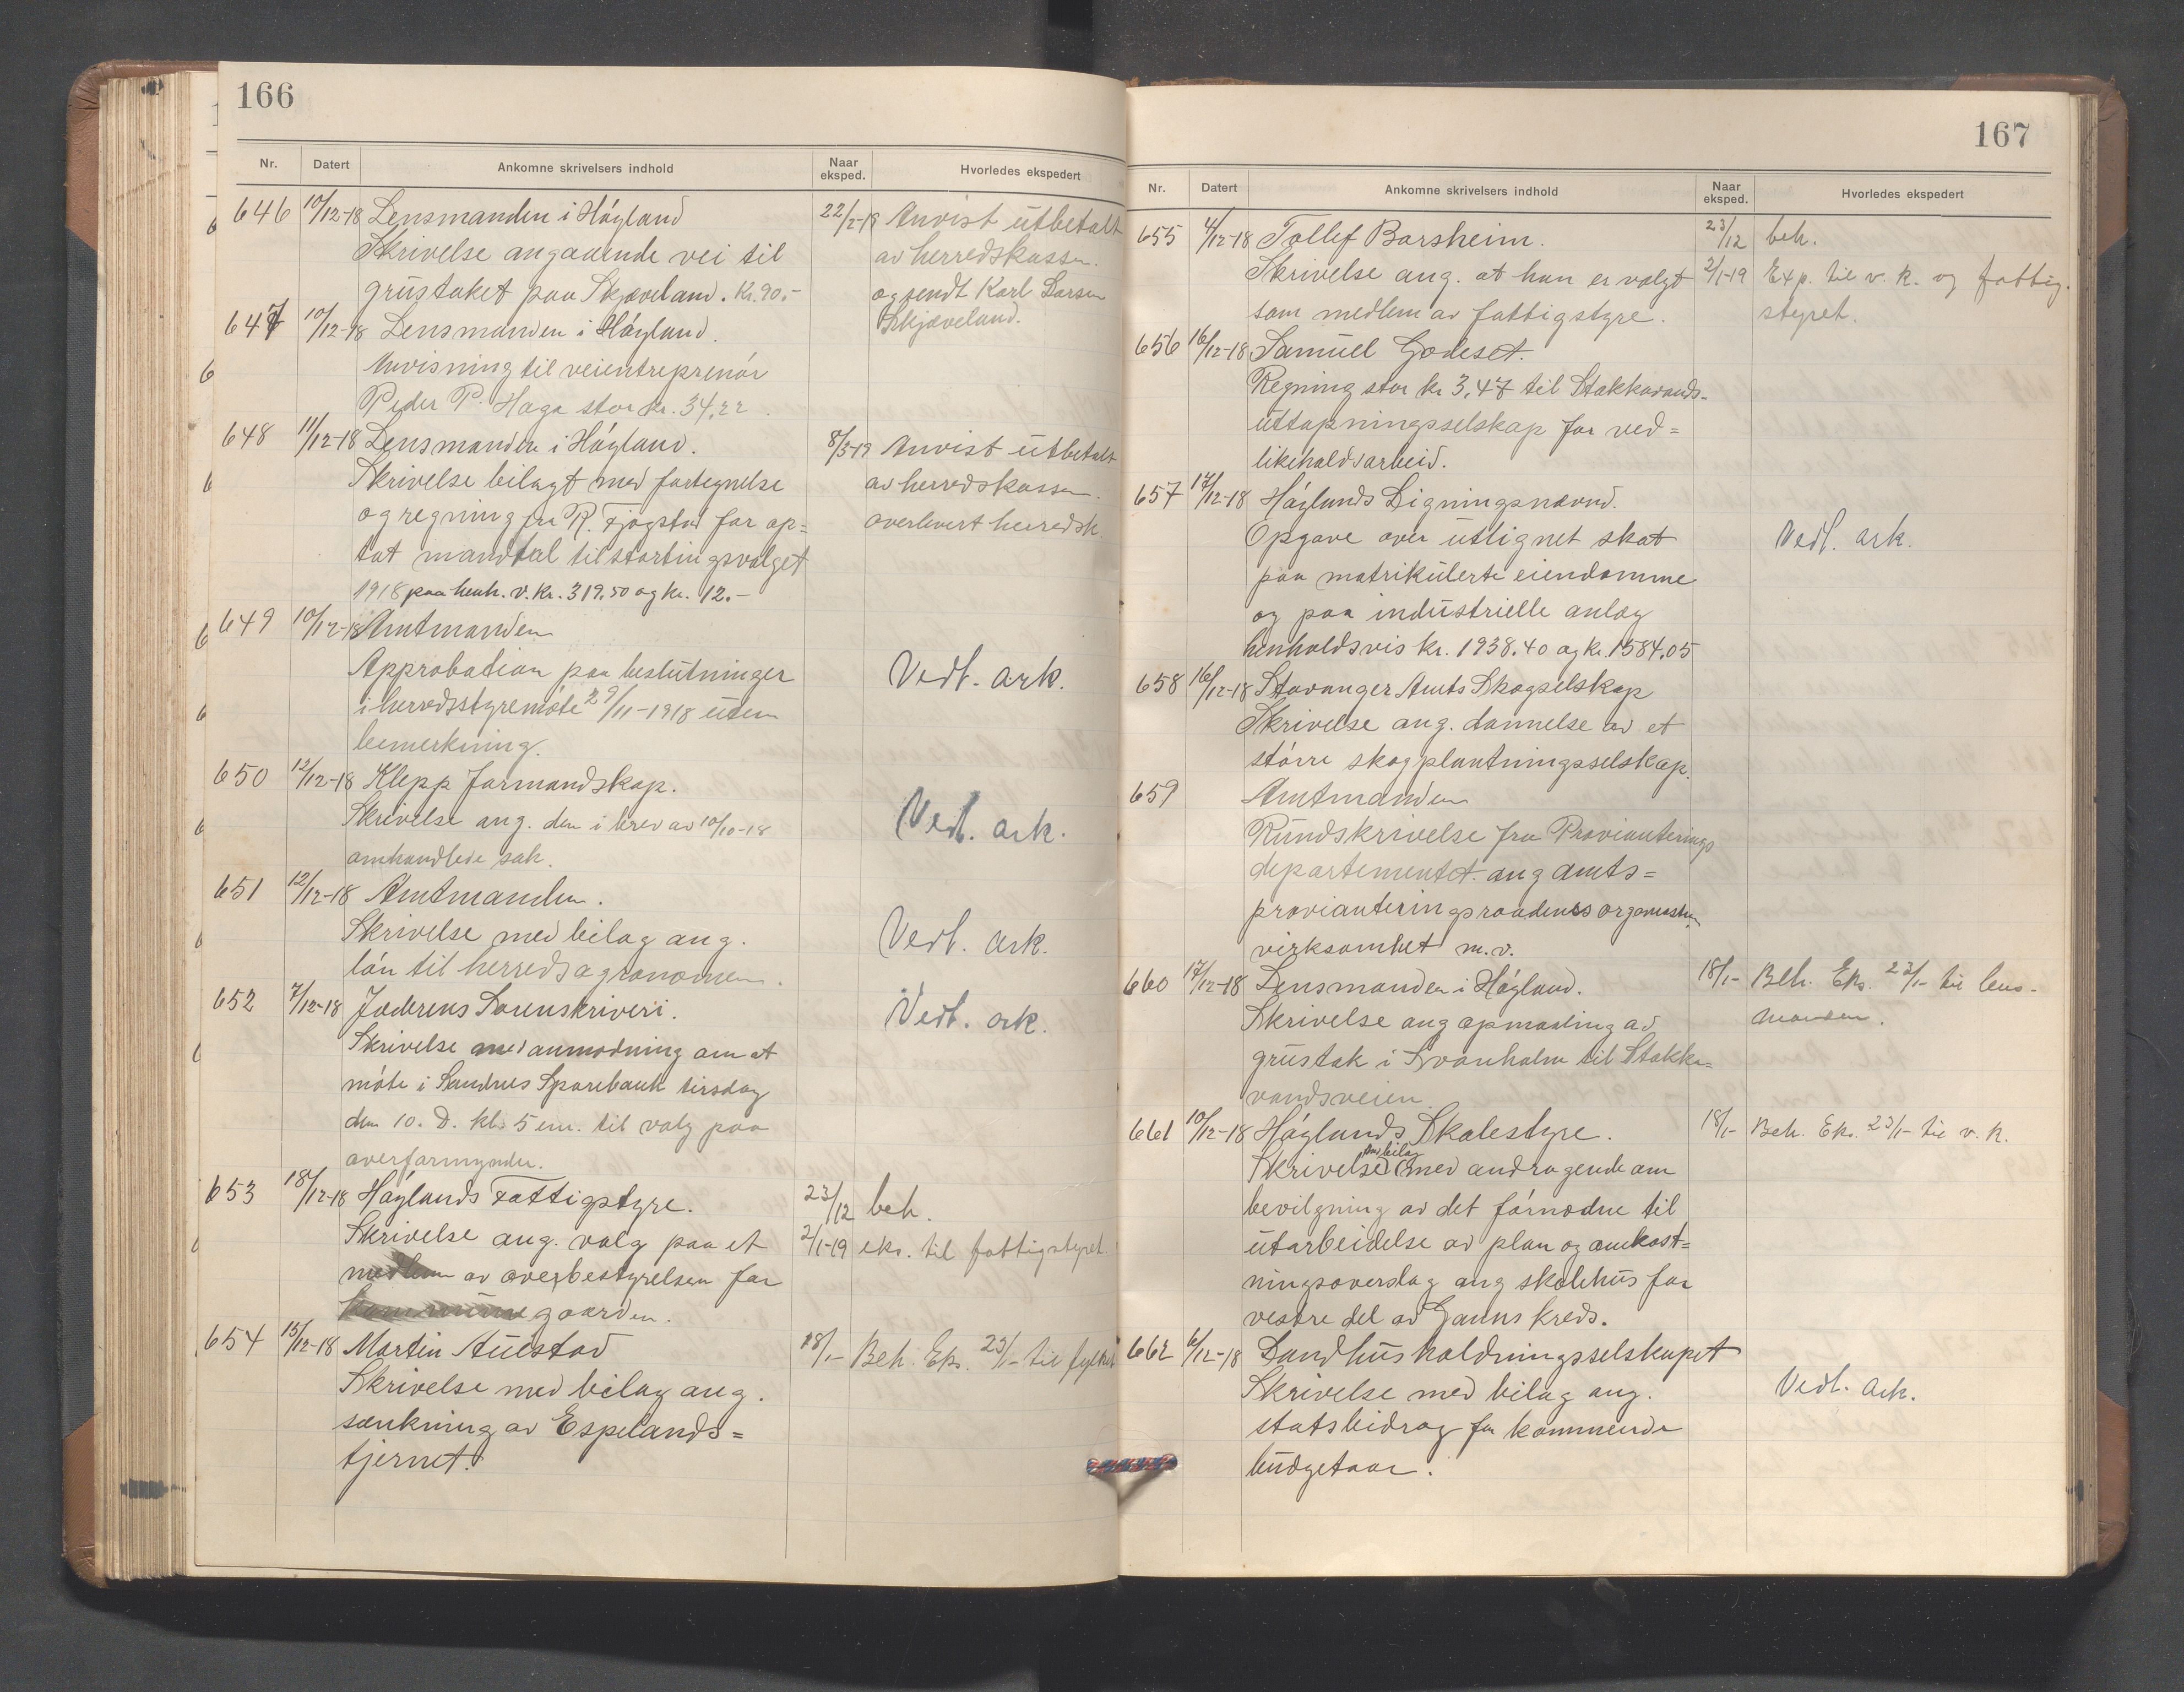 166
Nr. Datert Ankomne skrivelsers indhold Naar eksped. Hvorledes ekspedert
646 10/12-18 Lensmanden i Høyland 22/2-19 Anvist utbetalt
Skrivelse angaaende vei til av herredskassen.
grustaket paa Skjæveland. Kr. 90.- og sendt Karl Larsen
Skjæveland.
647 10/12-18 Lensmanden i Høyland.
Anvisning til veientreprenør
Peder P. Haga stor kr. 34,22.
648 11/12-18 Lensmanden i Høyland. 8/3-19 Anvist utbetalt
Skrivelse bilagt med fortegnelse av herredskassen.
og regning fra R. Fjogstad for op= overlevert herredsk.
tat mandtal til stortingsvalget
1918 paa henh. v. kr. 319.50 og kr. 12.-
649 10/12-18 Amtmanden
Approbation paa beslutninger Vedl. ark.
i herredsstyremøte 29/11-1918 uten
bemerkning.
650 12/12-18 Klepp formandskap.
Skrivelse ang. den i brev av 10/10-18 Vedl. ark.
omhandlede sak.
651 12/12-18 Amtmanden.
Skrivelse med bilag ang. Vedl. ark.
løn til herredsagronomen.
652 7/12-18 Jæderens Sorenskriveri. Vedl. ark.
Skrivelse med anmodning om at
møte i Sandnes Sparebank tirsdag
den 10. D. kl. 5 em. til valg paa
overformynder.
653 18/12-18 Høylands Fattigstyre. 23/12 beh.
Skrivelse ang. valg paa et 2/1-19 eks. til fattigstyret.
medlem av overbestyrelsen for
kommunegaarden.
654 15/12-18 Martin Austad 18/1- Beh. Eks. 23/1- til fylket
Skrivelse med bilag ang.
sænkning av Espelands=
tjernet.
167
Nr. Datert Ankomne skrivelsers indhold Naar eksped. Hvorledes ekspedert
655 4/12-18 Tollef Barsheim. 23/12 beh.
Skrivelse ang. at han er valgt 2/1-19 Exp. til v. k. og fattig.
som medlem av fattigstyre. styret.
656 16/12-18 Samuel Godeset.
Regning stor kr 3,47 til Stokkavands-
uttapningsselskap for ved=
likeholdsarbeid.
657 17/12-18 Høylands Ligningsnævnd.
Opgave over utlignet skat Vedl. ark.
paa matrikulerte eiendomme
og paa industrielle anlæg
henholdsvis kr. 1938.40 og kr. 1584.05
658 16/12-18 Stavanger Amts Skogselskap
Skrivelse ang. dannelse av et
større skogplantningsselskap.
659 Amtmanden
Rundskrivelse fra Provianterings
departementet ang amts=
provianteringsraadenes
virksomhet m.v.
660 17/12-18 Lensmanden i Høyland. 18/1- Beh. Eks. 23/1- til lens-
Skrivelse ang opmaaling av manden.
grustak i Svanholm til Stokka=
vandsveien
661 10/12-18 Høylands Skolestyre. 18/1- Beh. Eks. 23/1- til v. k.
Skrivelse (med bilag) med andragende om
bevilgning av det fórnødne til
utarbeidelse av plan og omkost=
ningsoverslag ang skolehus for
vestre del av Ganns kreds.
662 6/12-18 Landhusholdningsselskapet
Skrivelse med bilag ang. Vedl. Ark.
statsbidrag for kommende
budgetaar.